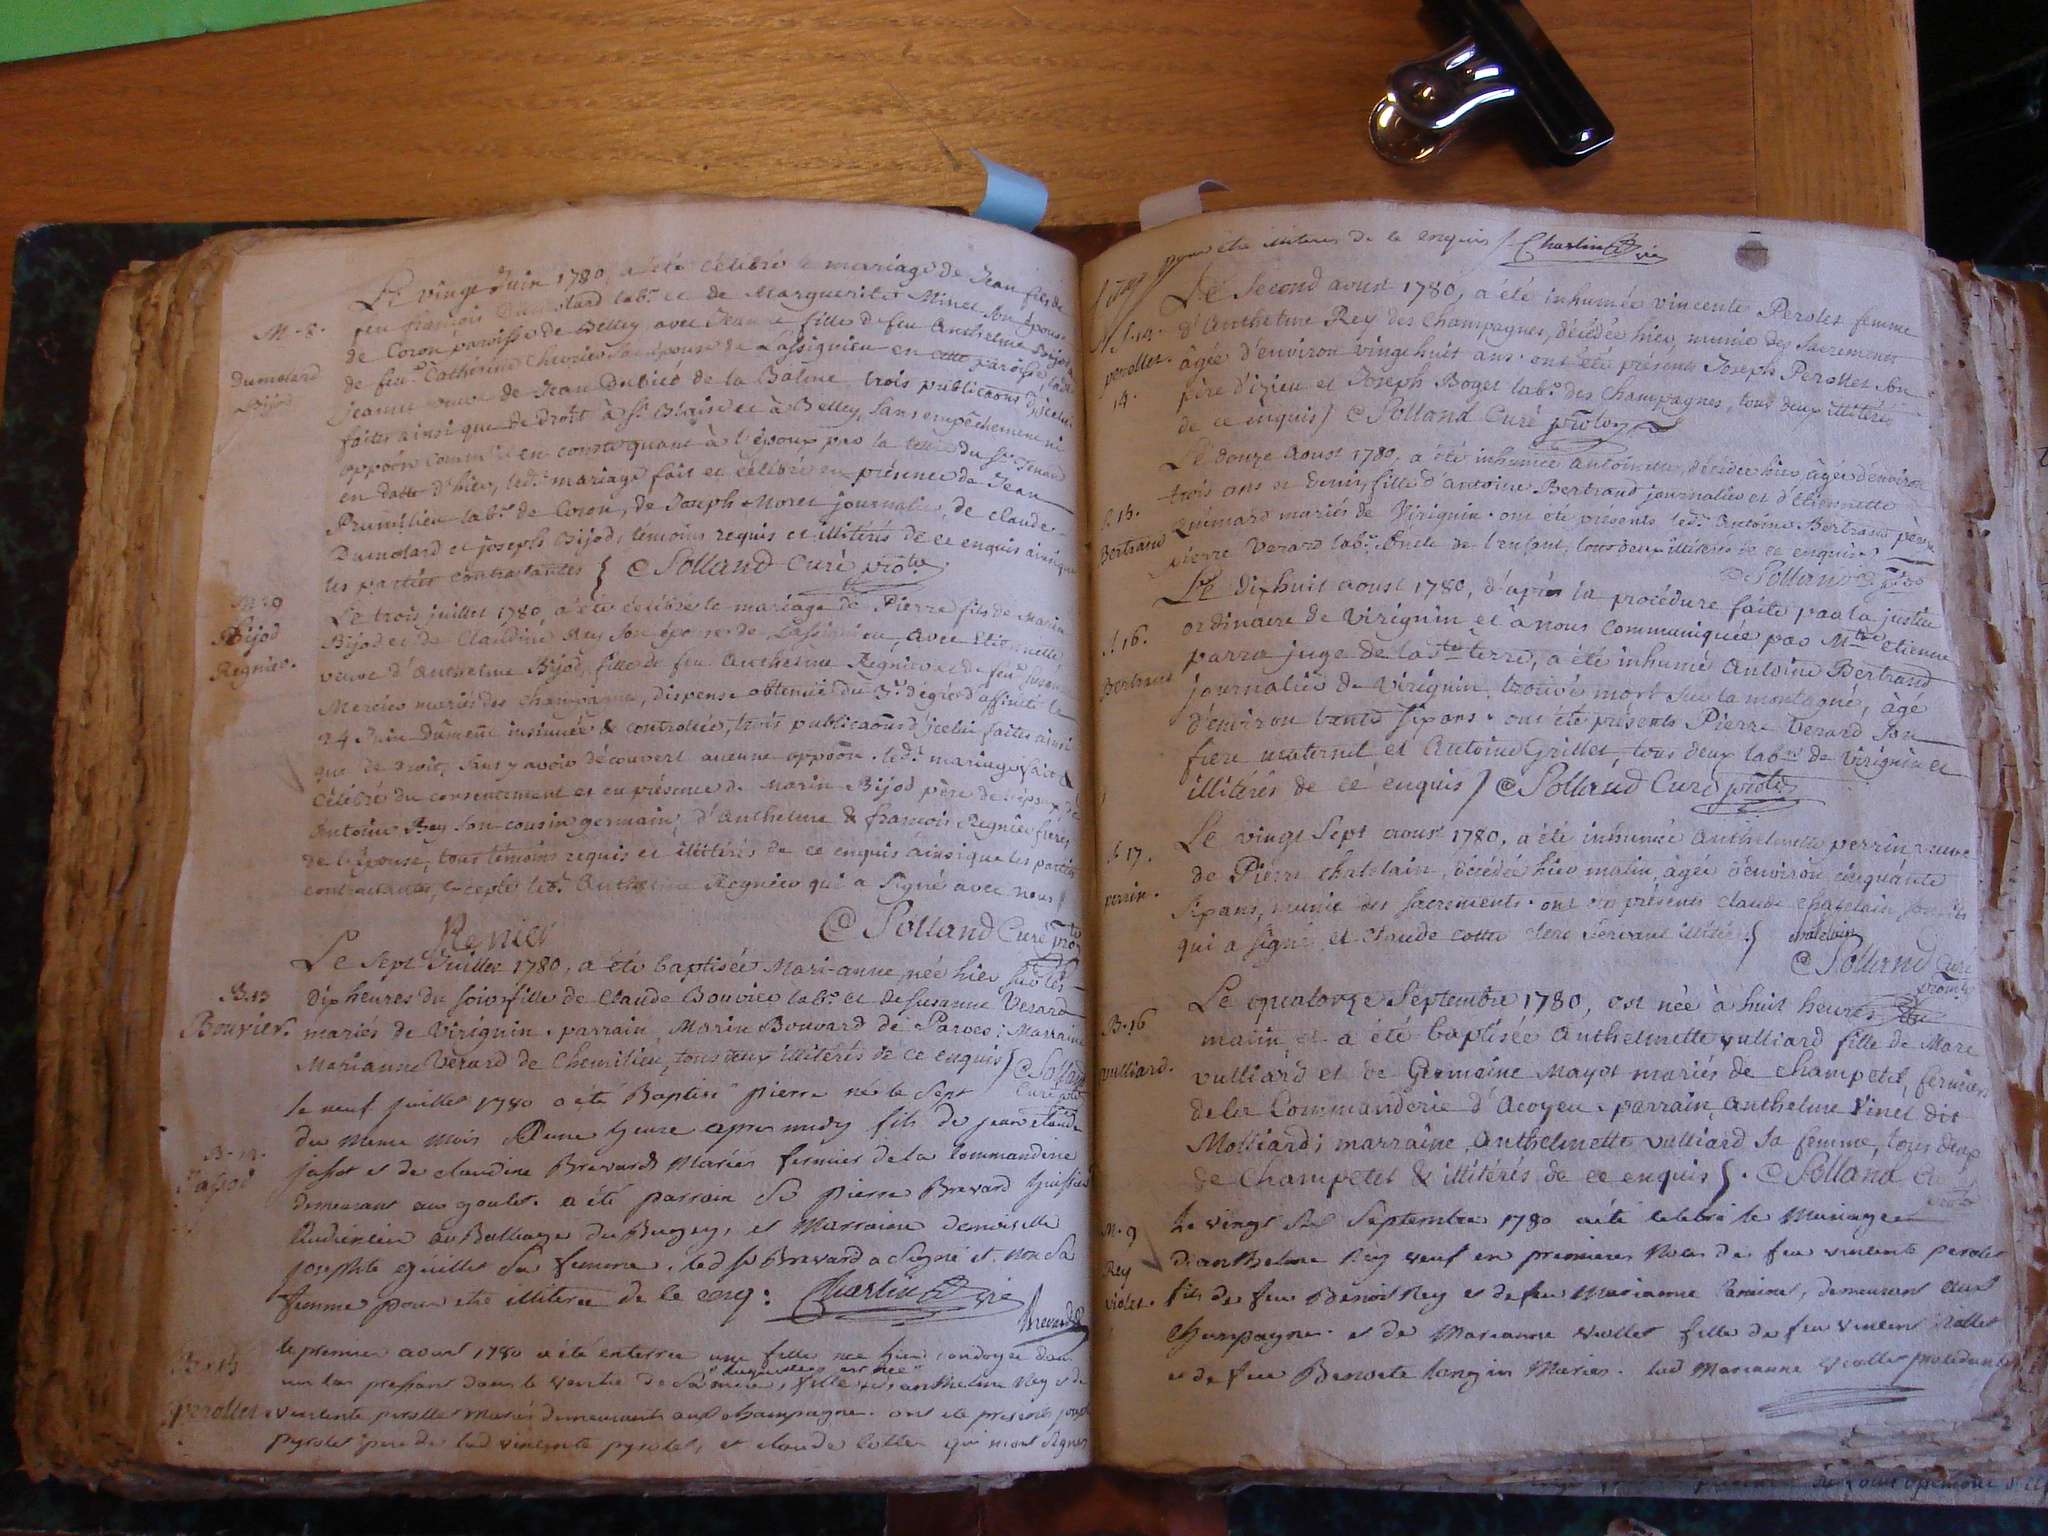 M-8.
Dumolard
Bijod
Le vingt Juin 1780, a été célébré le mariage de Jean fils de
feu françois Dumolard labr. et de Marguerite Minet son épouse
de Coron paroisse de Belley, avec Jeanne fille de feu Anthelme Bijod
de feue Catherine Chevrier son épouse de Lassignieu en cette paroisse,
veuve de Jean Dubicé de la Balme trois publicaons d'icelui
faites ainsi que de droit à St. Blaise et à Belley, sans empêchement ni
oppoôn comm'il en conste quant à l'époux par la du Sr. Tenand
en datte d'hier, ledt. mariage fait et célébré en présence de Jean
Prumilieu labr. de Coron, de Joseph Moret journalier, de claude
Dumolard et joseph Bijod, témoins requis et illitérés de ce enquis ainsique
les parties contractantes } Solland Curé
M-9
Bijod
Regnier.
Le trois juillet 1780, a été célébré le mariage de Pierre fils de Marin
Bijod et de Claudine Rey son épouse de Lassignieu, avec Etiennette
veuve d'Anthelme Bijod, fille de feu Anthelme Regnier et de feue
Mercier mariés des champagne, dispense obtenue du 3e. dégré d'affinité le
24 Juin dûment insinuée & controllée, trois publicaons d'icelui faites ainsi
que de droit, sans y avoir découvert aucune oppoôn. ledt. mariage fait &
célébré du consentement et en présence de Marin Bijod père de l'époux, de
Antoine Rey son cousin germain, d'Anthelme & françois Regnier frères
de l'épouse, tous témoins requis et illitérés de ce enquis ainsique les parties
contractantes, excepté ledt. Anthelme Regnier qui a signé avec nous
Renier Solland Curé
B.13
Bouvier.
Le Sept Juillet 1780, a été baptisée Mari-anne, née hier sur les
dix heures du soir fille de Claude Bouvier labr. et de Susanne Verard
mariés de Virignin. parrain, Marin Bouvard de Parves; Marraine
Marianne Verard de Chemilieu, tous deux illitérés de ce enquis } Solland
Curé
B-14.
Jassod
le neuf juillet 1780 a été Baptisé pierre né le Sept
du meme mois d'une heure apres midy fils de jean claude
jassot et de claudine Brevard Mariés fermier de la Commanderie
demeurant aux goulet. a été parrain Sr pierre Brevard huissier
Audiencier au Balliage du Bugey, et Marraine demoiselle
josephte Eguillet Sa femme. led Sr Brevard a Signé et non Sa
femme pour etre illiteree de le enq: Charlin Vic
Brevard
perollet
le premier aout 1780 a été enterree une fille née hier ondoyée dans
un cas pressant dans le ventre de sa mere, fille d'anthelme Rey et de
vincente perollet mariés demeurants aux champagne. ont ete presents joseph
pyrolet pere de lad vincente pyrolet, et claude cottin qui n'ont signer
pour etre illiteres de le enquis / Charlin Vic
perollet.
14.
Le Second aoust 1780, a été inhumée vincente Perolet femme
d'Anthelme Rey des Champagnes, décédée hier, munie des Sacremens
âgée d'environ vingt huit ans. ont été présents Joseph Perollet son
père d'izieu et Joseph Boget labr. des Champagnes, tous deux illitérés
de ce enquis / Solland Curé
S.15.
Bertrand
Le douze Aoust 1780, a été inhumée Antoinette, décédée hier, âgée d'environ
trois ans et demi, fille d'antoine Bertrand journalier et d'Etiennette
Quémard mariés de Virignin. ont été présents ledt. Antoine Bertrand père &
pierre Verard labr. Oncle de l'enfant, tous deux illitérés de ce enquis.
Solland
S.16.
Bertrand
Le dixhuit aoust 1780, d'après la procédure faite par la justice
ordinaire de Virignin et à nous communiquée par Mtre. etienne
parra juge de ladte terre, a été inhumé Antoine Bertrand
journalier de Virignin trouvé mort sur la montagne, âgé
d'environ trente six ans. ont été présents Pierre Verard son
frere maternel et Antoine Grillet, tous deux labrs de Virignin et
illitérés de ce enquis / Solland Curé
S.17.
perrin.
Le vingt Sept aoust 1780, a été inhumée Anthelmette perrin veuve
de Pierre Chatelain, décédée hier matin, âgée d'environ cinquante
six ans, munie des sacrements. ont été présents claude chatelain son fils
qui a signé et claude cottin clerc servant illitéré } chatelain
Solland Curé
B.16
vulliard.
Le quatorze Septembre 1780, est née à huit heures du
matin et a été baptisée Anthelmette vulliard fille de Marc
vulliard et de Germaine Mayot mariés de champetel, fermier
de la Commanderie d'Acoyeu. parrain, Anthelme Vinet dit
Molliard; marraine, Anthelmette vulliard sa femme, tous deux
de Champetel & illitérés de ce enquis }. Solland
M.9
Rey
violet.
Le vingt Sept Septembre 1780 a été celebré le Mariage
d'anthelme Rey veuf en premieres noces de feu vincente perolet
fils de feu Benoit Rey et de feu Marianne, demeurant aux
Champagne. et de Marianne viollet fille de feu vincent viollet
et de feu Benoite longin Mariés. lad Marianne viollet